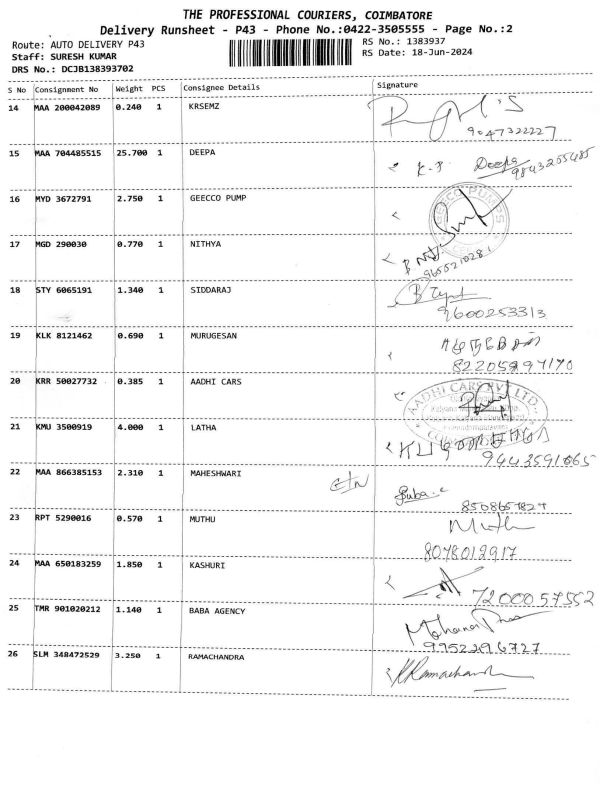 THE PROFESSIONAL COURIERS, COIMBATORE
Delivery Runsheet - P43 - Phone No.:0422-3505555 - Page No.:2
Route: AUTO DELIVERY P43
Staff: SURESH KUMAR
DRS No.: DCJB138393702
RS No.: 1383937
RS Date: 18-Jun-2024
S No Consignment No Weight PCS Consignee Details Signature
14 MAA 200042089 0.240 1 KRSEMZ
9047322227
15 MAA 704485515 25.700 1 DEEPA
K.P. Deepa
9843255485
16 MYD 3672791 2.750 1 GEECCO PUMP
17 MGD 290030 0.770 1 NITHYA
9655210281
18 STY 6065191 1.340 1 SIDDARAJ
9600253313
19 KLK 8121462 0.690 1 MURUGESAN
20 KRR 50027732 0.385 1 AADHI CARS
AADHI CARS PVT LTD
21 KMU 3500919 4.000 1 LATHA
9443591665
22 MAA 866385153 2.310 1 MAHESHWARI
Suba
23 RPT 5290016 0.570 1 MUTHU
Muth
8078012917
24 MAA 650183259 1.850 1 KASHURI
7200057552
25 TMR 901020212 1.140 1 BABA AGENCY
9952296727
26 SLM 348472529 3.250 1 RAMACHANDRA
K Ramachand